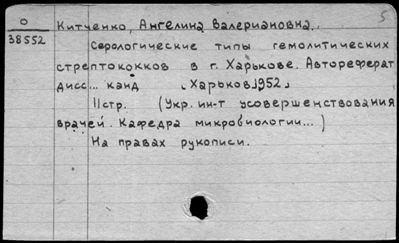 5
О
38552
Китченко, Ангелина Валериановна.
Серологические типы гемолитических
стрептококков в г. Харькове. Автореферат
дисс... канд [Харьков] 1952.
11стр. (Укр. ин-т усовершенствования
врачей. Кафедра микробиологии...)
На правах рукописи.